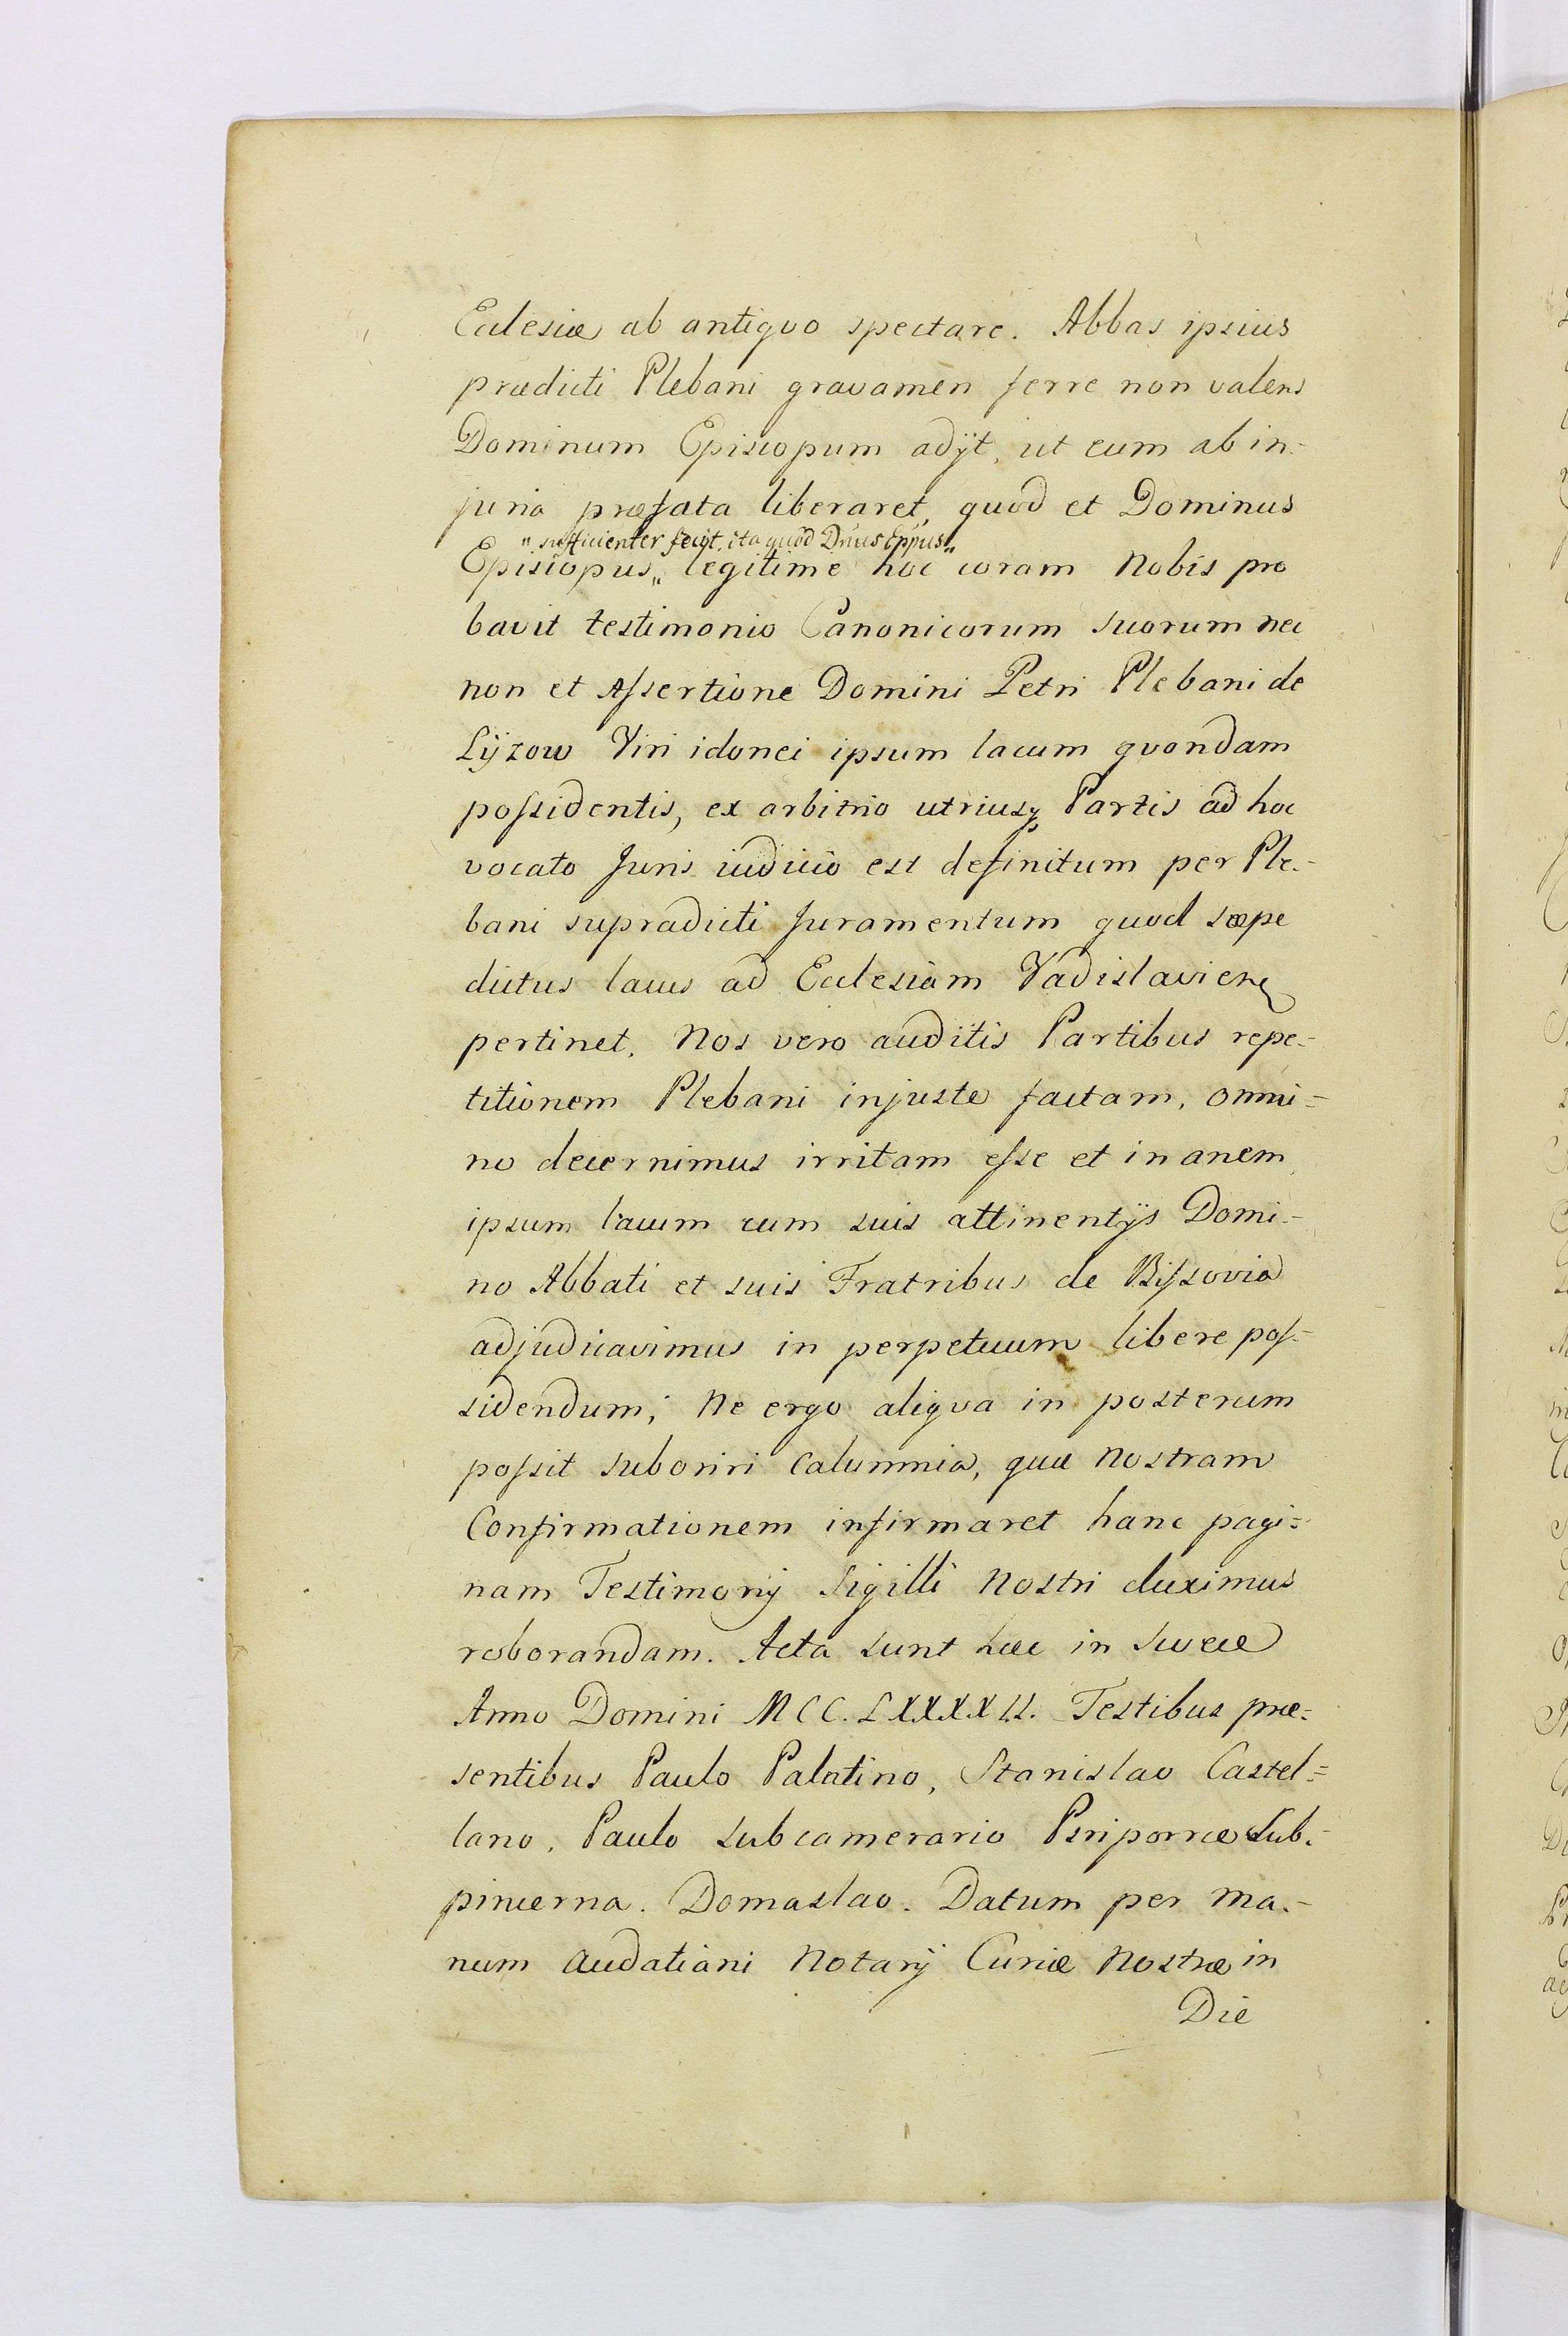 Ecclesiæ ab antiquo spectare. Abbas ipsius
prædicti Plebani gravamen ferre non valens
Dominum Episcopum adijt, ut eum ab in-
juria præfata liberaret, quod et Dominus
"sufficienter fecit, ita quod Dnus Eppus"
Episcopus" legitime hoc coram Nobis pro
bavit testimonio Canonicorum suorum nec
non et Assertione Domini Petri Plebani de
Lÿzow Viri idonei ipsum lacum quondam
possidentis, ex arbitrio utriusq Partis ad hoc
vocato Juris iudicio est definitum per Ple-
bani supradicti Juramentum quod sæpe
dictus lacus ad Ecclesiam Vadislavien
pertinet. Nos vero auditis Partibus repe-
titionem Plebani injuste factam, omni=
no decernimus irritam esse et inanem,
ipsum lacum cum suis attinentijs Domi-
no Abbati et suis Fratribus de Bissovia
adjudicavimus in perpetuum libere pos-
sidendum; Ne ergo aliqua in posterum
possit suboriri calumnia, quæ Nostram
Confirmationem infirmaret hanc pagi=
nam Testimonij Sigilli Nostri duximus
roborandam. Acta sunt hæc in Swece
Anno Domini MCC.LXXXXII. Testibus præ=
sentibus Paulo Palatino, Stanislao Castel=
lano, Paulo Subcamerario Psriporcæ Sub-
pincerna. Domaslao. Datum per Ma-
num Audatiani Notarij Curiæ Nostræ in
Die